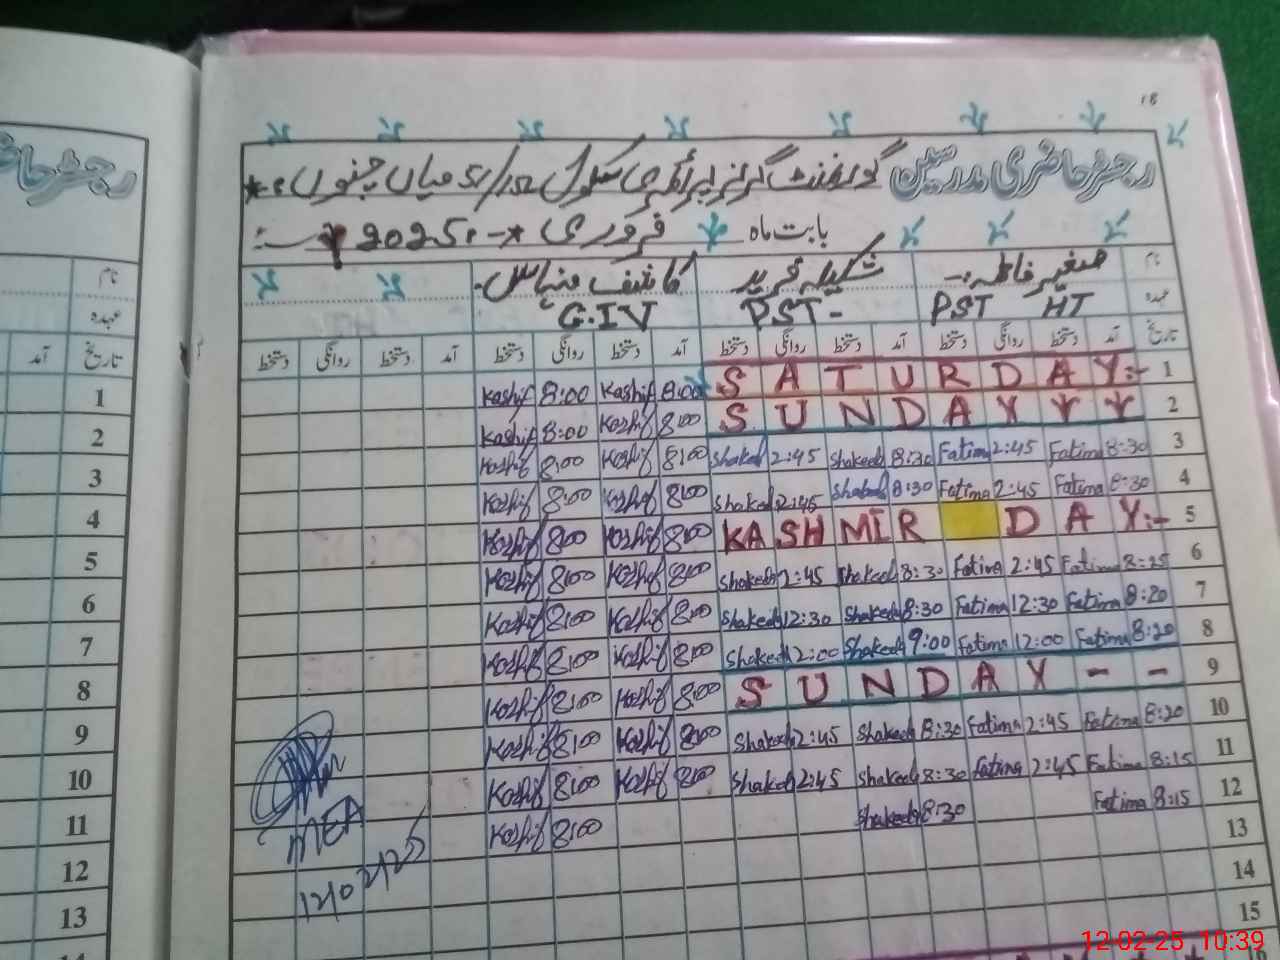 18
رجسٹر حاضری مدرسین گورنمنٹ گرلز پرائمری سکول میاں چنوں
بابت ماہ فروری 2025
نام صغیر فاطمہ شکیلہ فرید کاشف
عہدہ PST HT PST- C.IV
تاریخ آمد دستخط روانگی دستخط آمد دستخط روانگی دستخط آمد دستخط روانگی دستخط آمد دستخط روانگی دستخط
Kashif 8:00 Kashif 8:00 SATURDAY:- 1
Kashif 8:00 Kashif 8:00 SUNDAY 2
Kashif 8:00 Kashif 8:00 Shakeel 2:45 Shakeela 8:30 Fatima 2:45 Fatima 8:30 3
Kashif 8:00 Kashif 8:00 Shakeel 2:45 Shakeel 8:30 Fatima 2:45 Fatima 8:30 4
Kashif 8:00 Kashif 8:00 KASHMIR DAY:- 5
Kashif 8:00 Kashif 8:00 Shakeela 2:45 Shakeela 8:30 Fatima 2:45 Fatima 8:25 6
Kashif 8:00 Kashif 8:00 Shakeela 12:30 Shakeela 8:30 Fatima 12:30 Fatima 8:20 7
Kashif 8:00 Kashif 8:00 Shakeela 2:00 Shakeela 9:00 Fatima 12:00 Fatima 8:20 8
Kashif 8:00 Kashif 8:00 SUNDAY - - 9
Kashif 8:00 Kashif 8:00 Shakeela 2:45 Shakeela 8:30 Fatima 2:45 Fatima 8:20 10
Kashif 8:00 Kashif 8:00 Shakeela 2:45 Shakeela 8:30 Fatima 2:45 Fatima 8:15 11
Kashif 8:00 Shakeela 8:30 Fatima 8:15 12
13
14
15
16
MEA
12/02/25
نام
عہدہ
تاریخ آمد
1
2
3
4
5
6
7
8
9
10
11
12
13
14
12-02-25 10:39